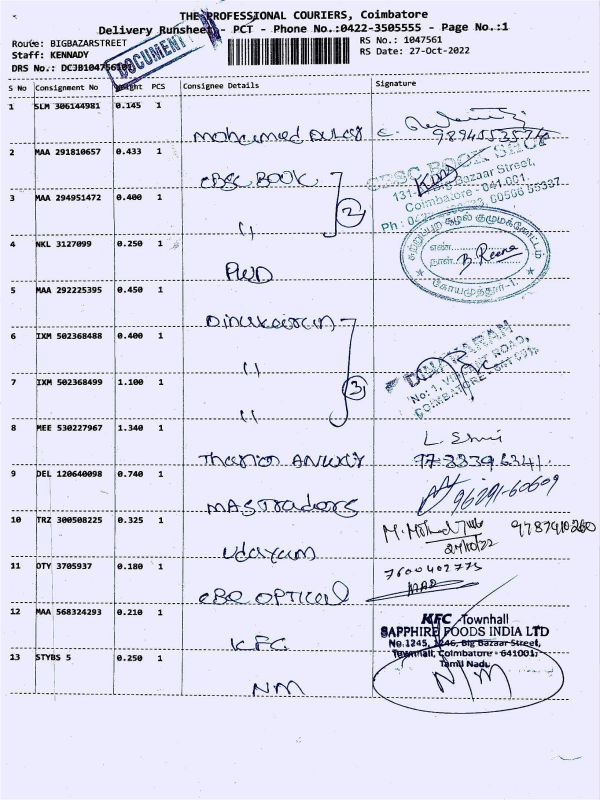 THE PROFESSIONAL COURIERS, Coimbatore
Delivery Runsheet - PCT - Phone No.:0422-3505555 - Page No.:1
Route: BIGBAZARSTREET
RS No.: 1047561
Staff: KENNADY
RS Date: 27-Oct-2022
DOCUMENT
S No Consignment No Weight PCS Consignee Details Signature
1 SLM 306144981 0.145 1
2 MAA 291810657 0.433 1
CBSC BOOK
CBSC BOOK SHOP
131- Big Bazaar Street,
Coimbatore - 641 001.
3 MAA 294951472 0.400 1
"
2
4 NKL 3127099 0.250 1
PWD
B. Reena
5 MAA 292225395 0.450 1
Dinakaran
6 IXM 502368488 0.400 1
"
DINAKARAN
7 IXM 502368499 1.100 1
"
3
8 MEE 530227967 1.340 1
9 DEL 120640098 0.740 1
MAS Traders
96291-60609
10 TRZ 300508225 0.325 1
Udayam
27/10/22
9787910260
11 OTY 3705937 0.180 1
CBE OPTICAL
7600402775
12 MAA 568324293 0.210 1
KFC
KFC -Townhall
SAPPHIRE FOODS INDIA LTD
No.1245, 1246, Big Bazaar Street,
Townhall, Coimbatore - 641001,
Tamil Nadu
13 STYBS 5 0.250 1
NM
N/M